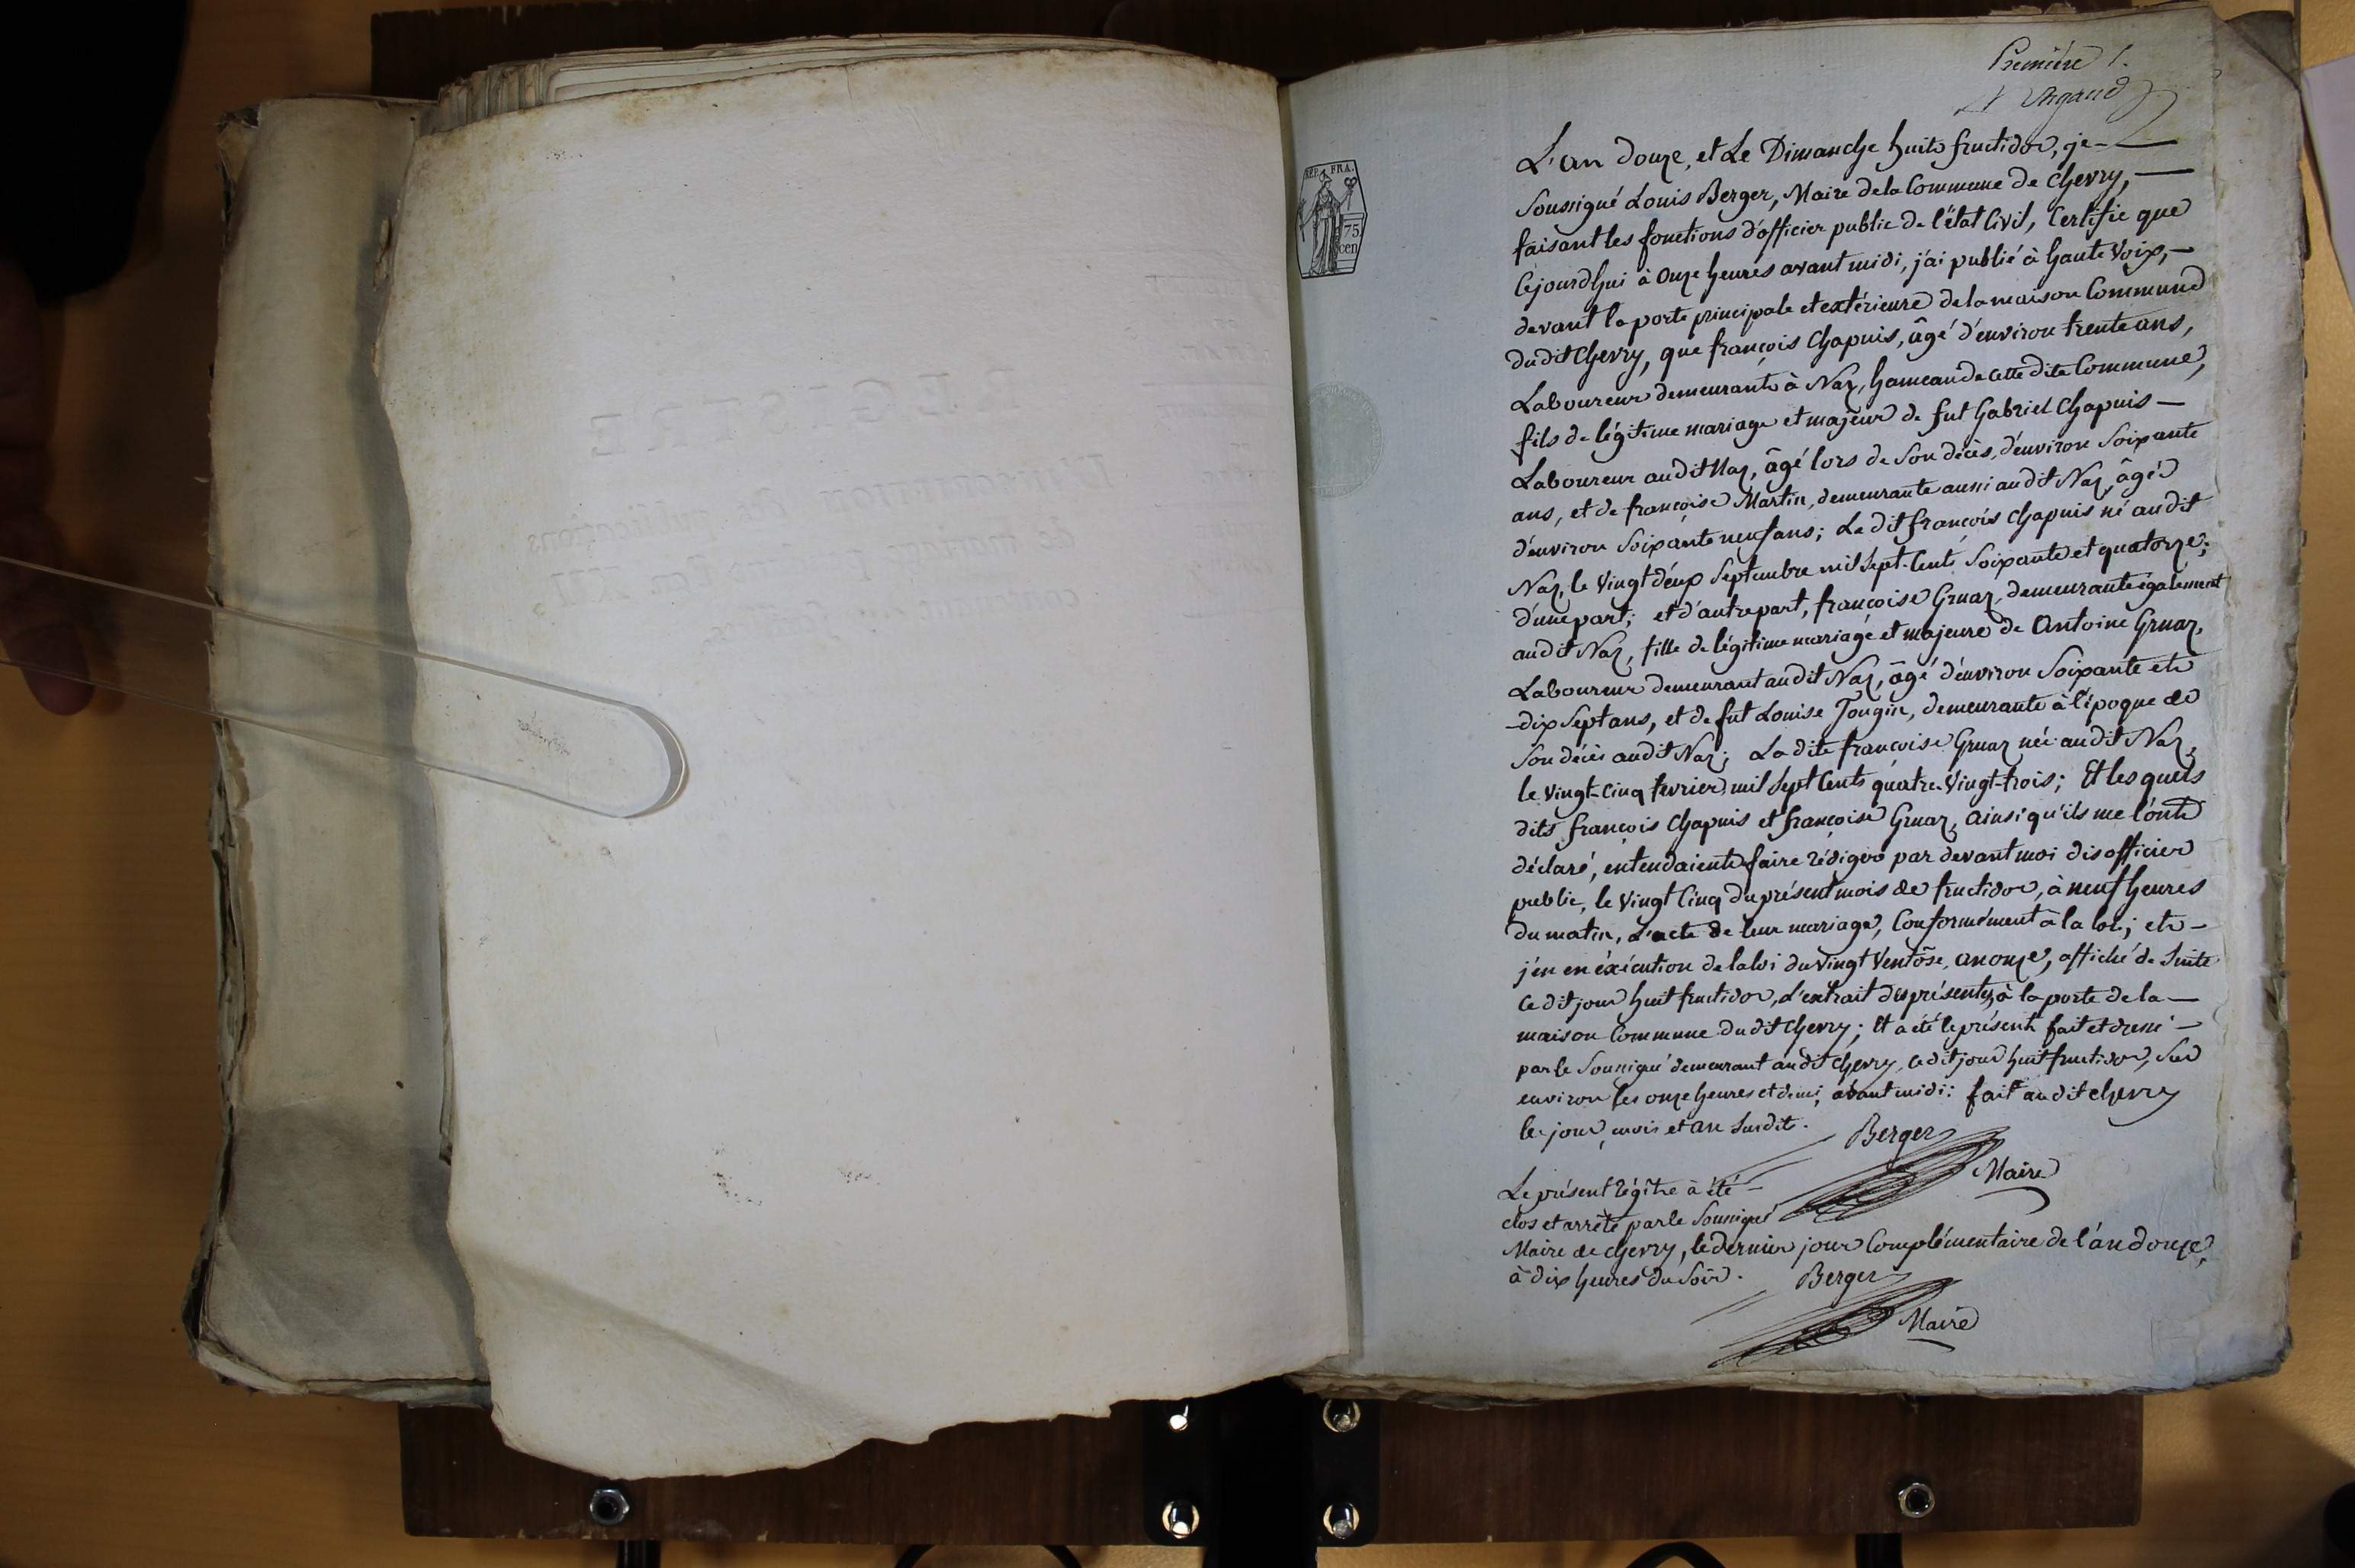 Première f.
L'an douze, et Le Dimanche huit fructidor, je
Soussigné Louis Berger, Maire de la Commune de Chevry,
faisant les fonctions d'officier public de l'état Civil, Certifie que
Cejourdhui à Onze heures avant midi, j'ai publié à haute Voix,
devant la porte principale et extérieure de la maison Commune
dudit Chevry, que françois Chapuis, âgé d'environ trente ans,
Laboureur demeurant à Naz, hameau de cette dite Commune,
fils de légitime mariage et majeur de fut Gabriel Chapuis
Laboureur audit Naz, âgé lors de Son décès, d'environ Soixante
ans, et de françoise Martin, demeurante aussi audit Naz, âgé
d'environ Soixante neuf ans; Le dit françois Chapuis né audit
Naz, le Vingt deux Septembre mil Sept-Cent Soixante et quatorze;
d'une part; et d'autre part, françoise Gruaz, demeurante également
audit Naz, fille de légitime mariage et majeure de Antoine Gruaz,
Laboureur demeurant audit Naz, âgé d'environ Soixante et
dix Sept ans, et de fut Louise Jougin, demeurante à l'époque de
Son décès audit Naz; La dite françoise Gruaz née audit Naz,
le Vingt-Cinq fevrier mil Sept Cent quatre-Vingt-trois; Et les quels
dits françois Chapuis et françoise Gruaz, ainsi qu'ils me l'ont
déclaré, entendaient faire rédiger par devant moi dis officier
public, le Vingt Cinq du présent mois de fructidor, à neuf heures
du matin, L'acte de leur mariage, Conformément à la loi; et
j'en en éxécution de la loi du Vingt Ventôse, an onze, affiché de Suite
Ce dit jour huit fructidor, L'extrait des présentes, à la porte de la
maison Commune dudit Chevry; Et a été le présent fait et dressé
par le Soussigné demeurant audit Chevry, ce dit jour huit fructidor, Sur
environ les onze heures et demi, avant midi: fait audit Chevry
le jour, mois et an Susdit. Berger
Maire
Le présent régitre à été
clos et arrêté par le Soussigné
Maire de Chevry, le dernier jour Complémentaire de l'an douze,
à dix heures du Soir. Berger
Maire
REP. FRA.
75
cen
REGISTRE